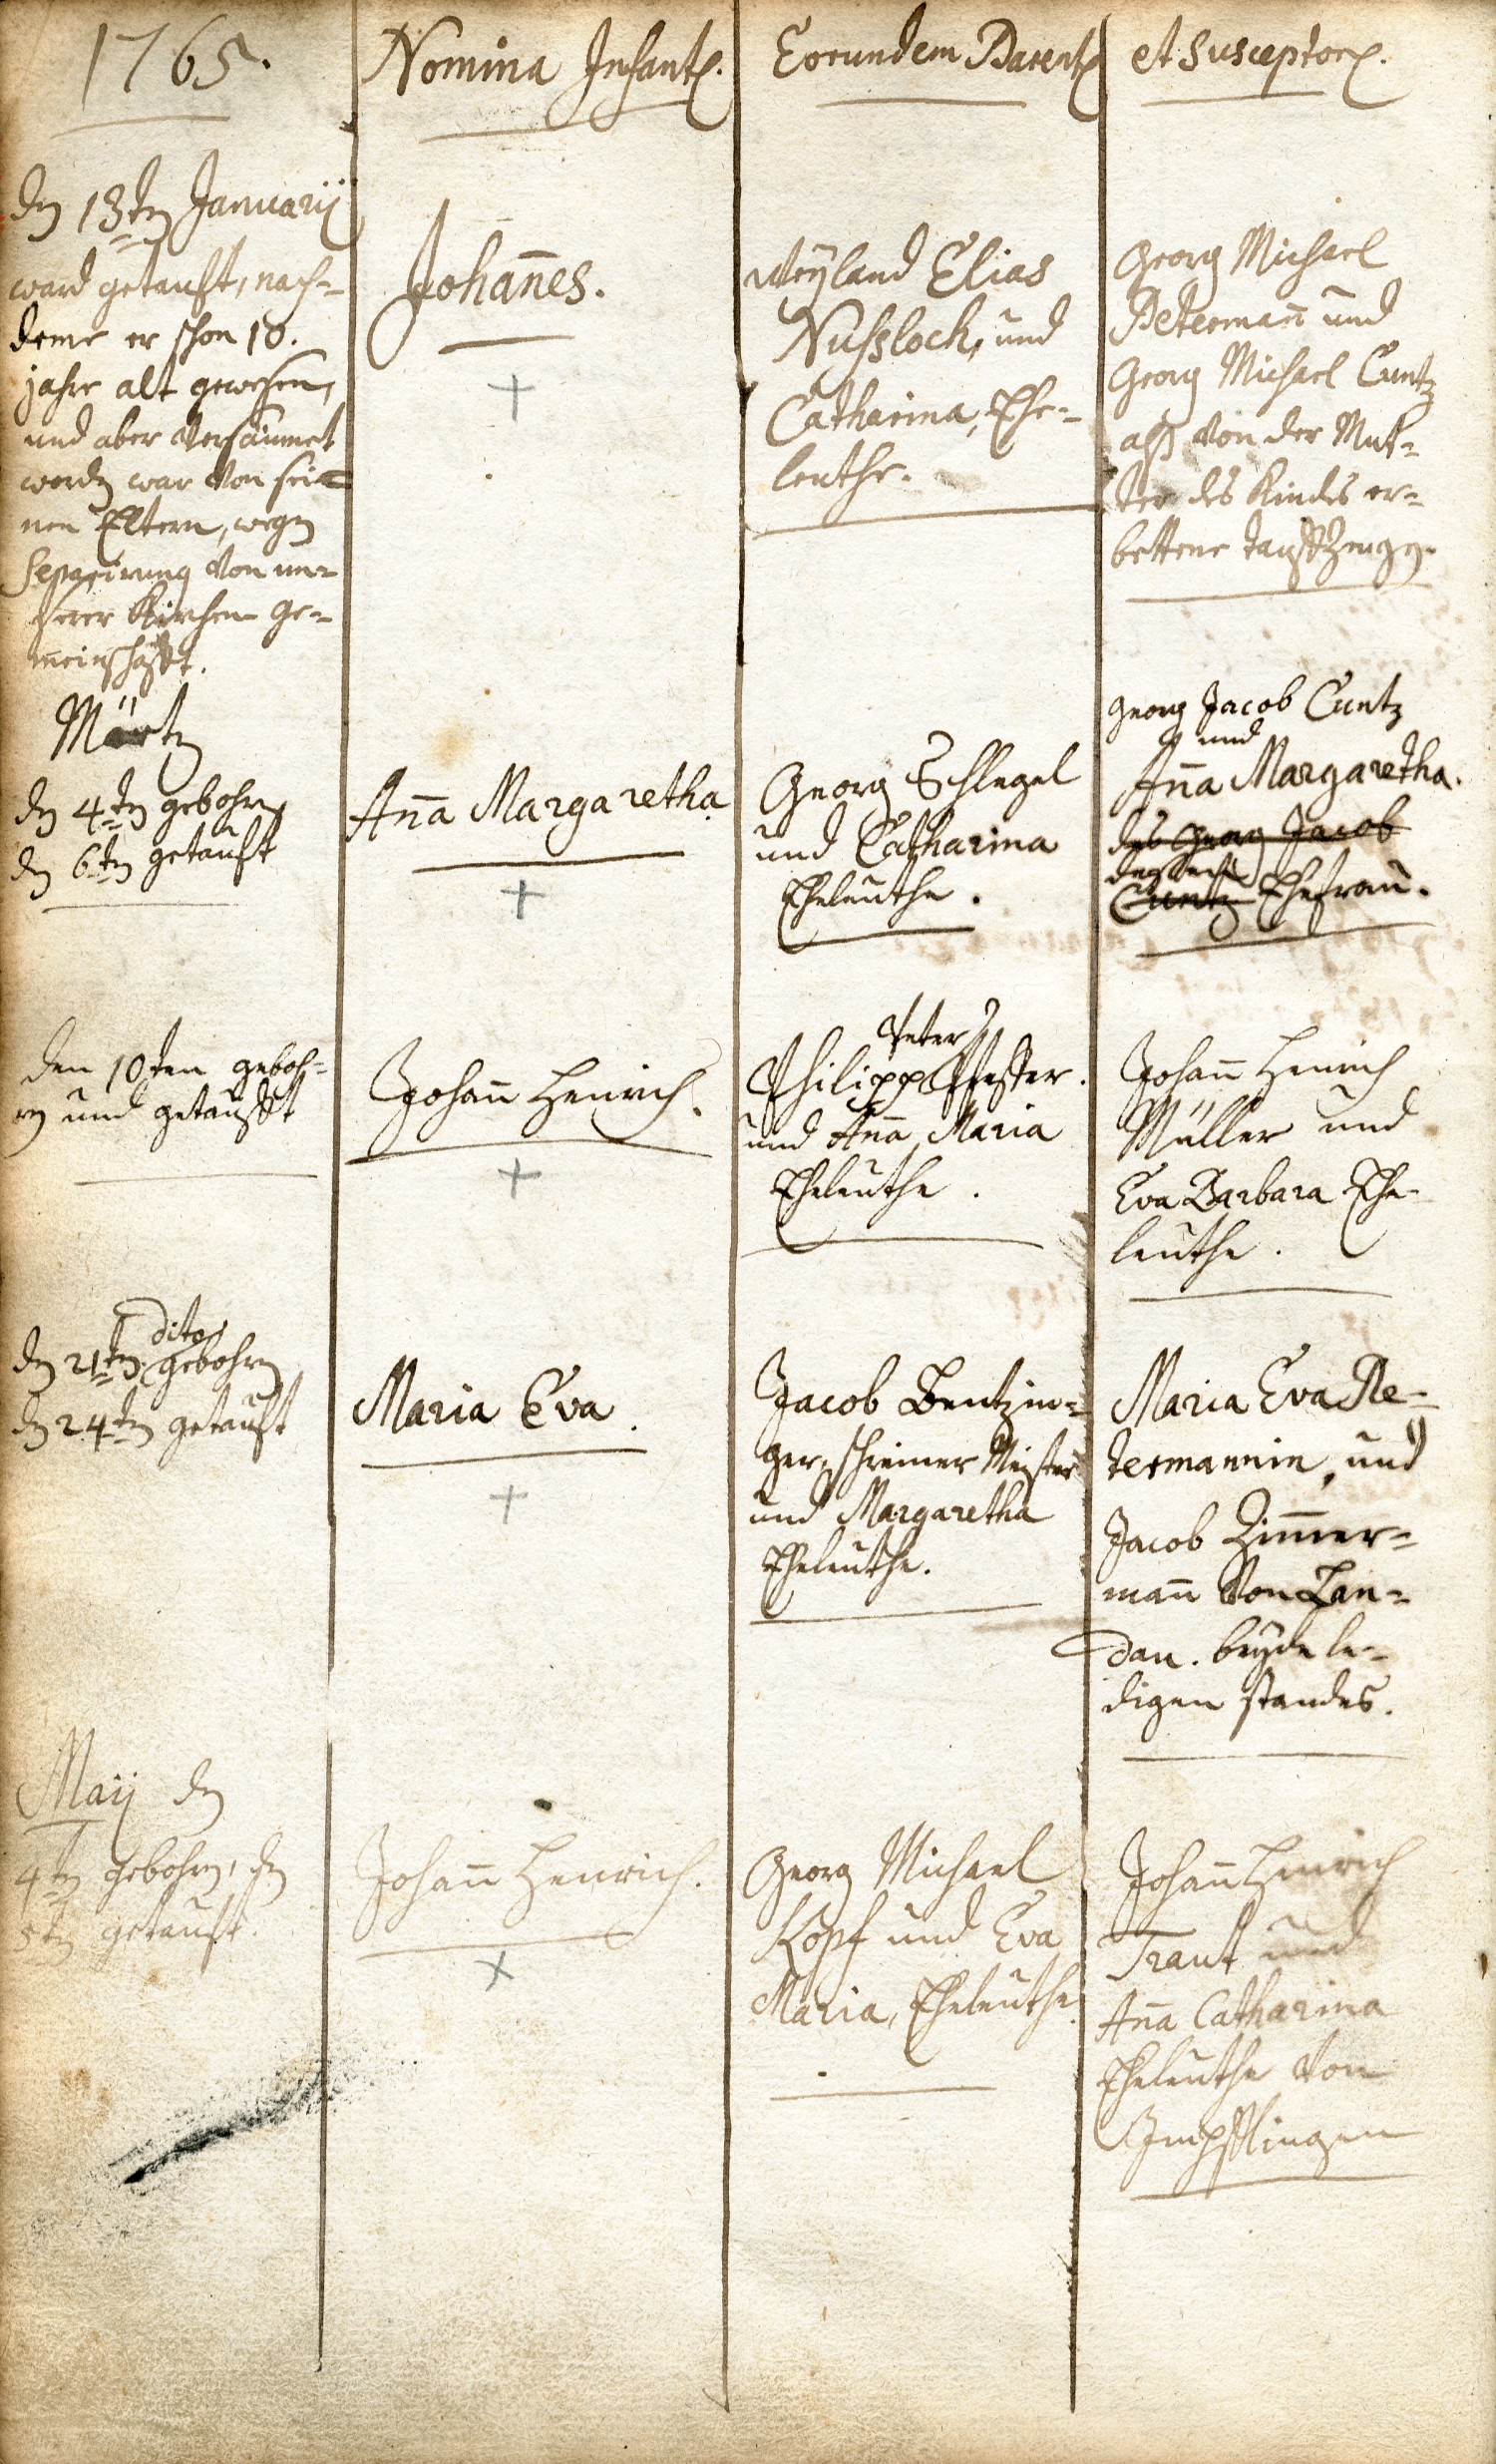 1765.
Nomina Infant.
Eorundem Parent.
et Susceptor.
den 13ten Januarij
ward getauft, nach=
deme er schon 10.
jahr alt gewesen,
und aber versäumet
worden war von sei=
nen Eltern, wegen
Separirung von un=
serer Kirchen ge=
meinschafft.
Johannes.
weyland Elias
Nussloch, und
Catharina, Ehe=
leuthe.
Georg Michael
Petermann und
Georg Michael Cuntz
alß von der Mut=
ter des Kindes er=
bettene Tauffzeugen.
Märtz
den 4ten gebohren
den 6ten getauft
Anna Margaretha
Georg Schlegel
und Catharina
Eheleuthe.
Georg Jacob Cuntz
und
Anna Margaretha.
des Georg Jacob
dessen
Cuntz Ehefrau.
den 10ten geboh=
ren und getaufft
Johann Henrich.
Peter
Philipp Pfister.
und Anna Maria
Eheleuthe.
Johann Henrich
Müller und
Eva Barbara Ehe=
leuthe.
dito
den 21ten gebohren
den 24ten getauft
Maria Eva.
Jacob Bentzin=
ger, schreiner Meister
und Margaretha
Eheleuthe.
Maria Eva Pe=
termannin, und
Jacob Zimmer=
mann von Lan=
dau. beyde le=
digen standes.
Maij den
4ten gebohren, den
5ten getauft.
Johann Henrich.
Georg Michael
Kopf und Eva
Maria, Eheleuthe.
Johann Henrich
Traut und
Anna Catharina
Eheleuthe von
Impfflingen